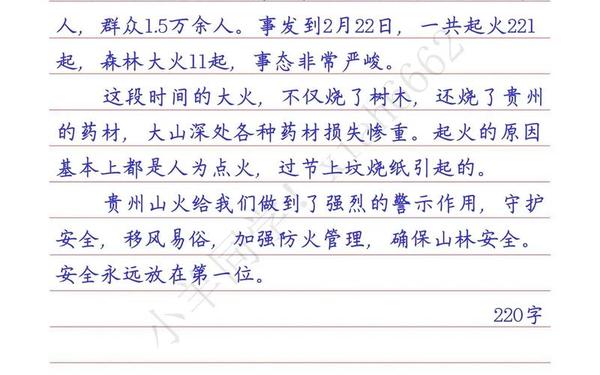 人，群众1.5万余人。事发到2月22日，一共起火221
起，森林大火11起，事态非常严峻。
这段时间的大火，不仅烧了树木，还烧了贵州
的药材，大山深处各种药材损失惨重。起火的原因
基本上都是人为点火，过节上坟烧纸引起的。
贵州山火给我们做到了强烈的警示作用，守护
安全，移风易俗，加强防火管理，确保山林安全。
安全永远放在第一位。
220字